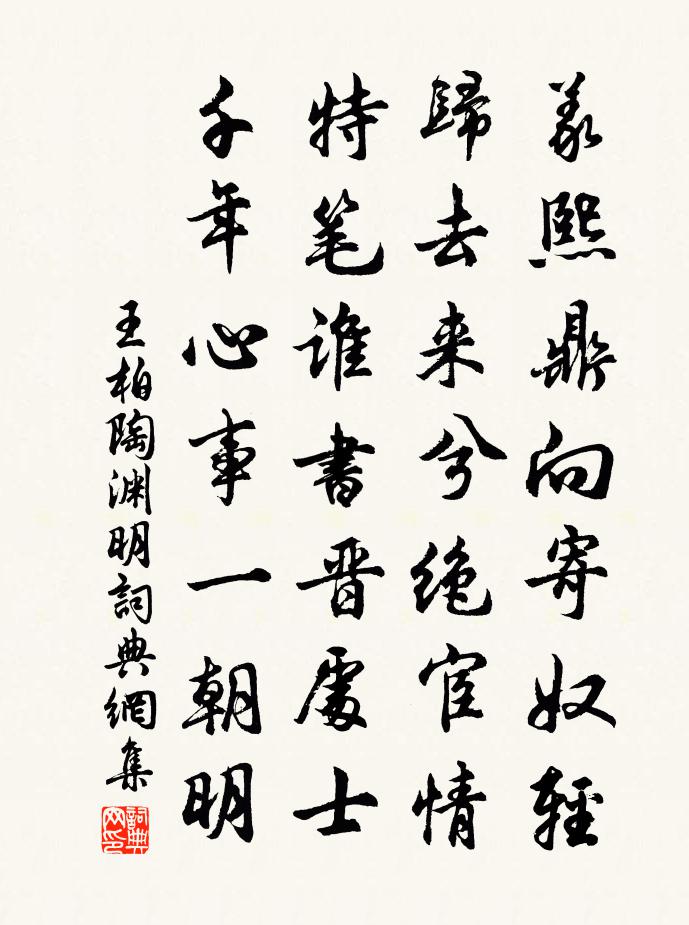 羲熙鼎向寄奴輕
歸去来兮绝宦情
特笔谁書晋處士
千年心事一朝明
王柏陶渊明詞典網集
詞典网印